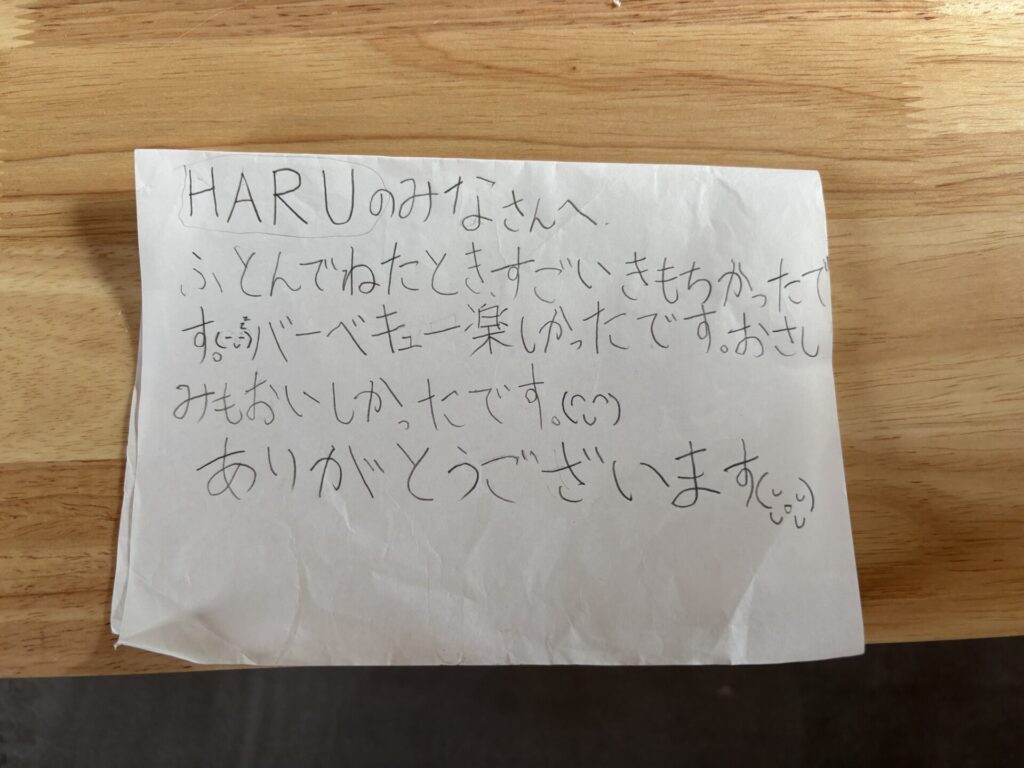 HARUのみなさんへ
ふとんでねたときすごいきもちかったで
す。バーベキュー楽しかったです。おさし
みもおいしかったです。(◡‿◡)
ありがとうございます